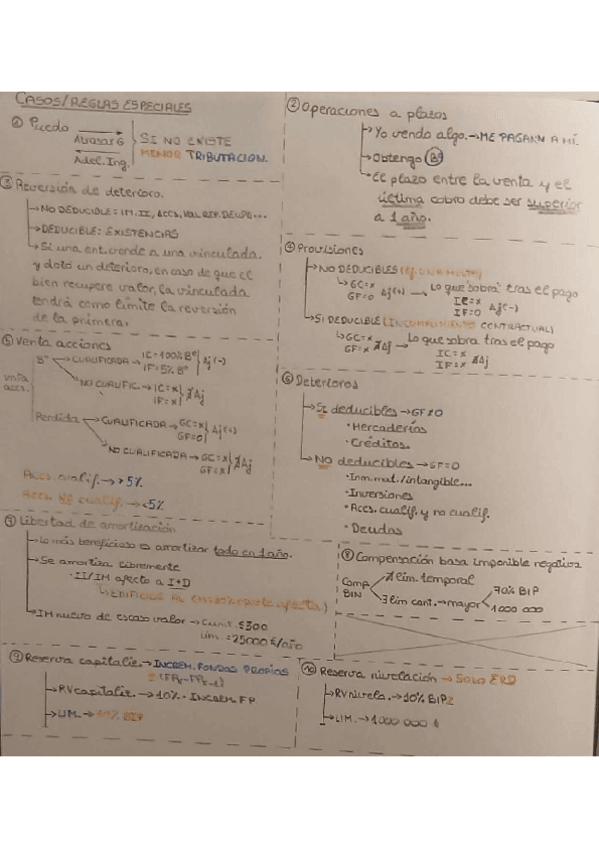 CASOS/REGLAS ESPECIALES
① Puedo
Atrasar G
Adel. Ing.
SI NO EXISTE
MENOR TRIBUTACION.
② Operaciones a plazos
Yo vendo algo. → ME PAGAN A MÍ.
Obtengo Bº
El plazo entre la venta y el
última cobro debe ser superior
a 1 año.
③ Reversión de deterioro.
NO DEDUCIBLE: IM. II, ACCS, VAL. REP. DEUDA...
DEDUCIBLE: EXISTENCIAS
Si una ent. vende a una vinculada.
y dotó un deterioro, en caso de que el
bien recupere valor, la vinculada
tendrá como límite la reversión
de la primera.
④ Provisiones
NO DEDUCIBLES (Ej. UNA MULTA)
GC=x
GF=0 Aj(+) → Lo que sobra tras el pago
IC=x
IF=0 Aj(-)
SI DEDUCIBLE (INCUMPLIMIENTO CONTRACTUAL)
GC=x
GF=x ∄Aj → Lo que sobra tras el pago
IC=x
IF=x ∄Aj
⑤ Venta acciones
Venta accs.
Bº → CUALIFICADA → IC=100% Bº
IF=5% Bº Aj(-)
NO CUALIFIC. → IC=x
IF=x ∄Aj
Perdida → CUALIFICADA → GC=x
GF=0 Aj(+)
NO CUALIFICADA → GC=x
GF=x ∄Aj
Accs. cualif. → >5%
Accs. NO cualif. → <5%
⑥ Deterioros
SI deducibles → GF≠0
· Mercaderías
· Créditos.
NO deducibles → GF=0
· Inm. mat./intangible...
· Inversiones
· Accs. cualif. y no cualif.
· Deudas
⑦ Libertad de amortización
Lo más beneficioso es amortizar todo en 1 año.
Se amortiza libremente
· II/IM afecto a I+D
EDIFICIOS AL
IM nuevo de escaso valor → C.unit. ≤300
Lím. = 25000 €/año
⑧ Compensación basa imponible negativa
Comp BIN
∄ lim. temporal
∃ lim cant. → mayor
70% BIP
1 000 000
⑨ Reserva capitaliz. → INCREM. FONDOS PROPIOS
RV capitaliz. → 10% · INCREM. FP
LIM. → 10% BIP
⑩ Reserva nivelación → SOLO ERD
RV nivela. → 10% BIP2
LIM. → 1000 000 €